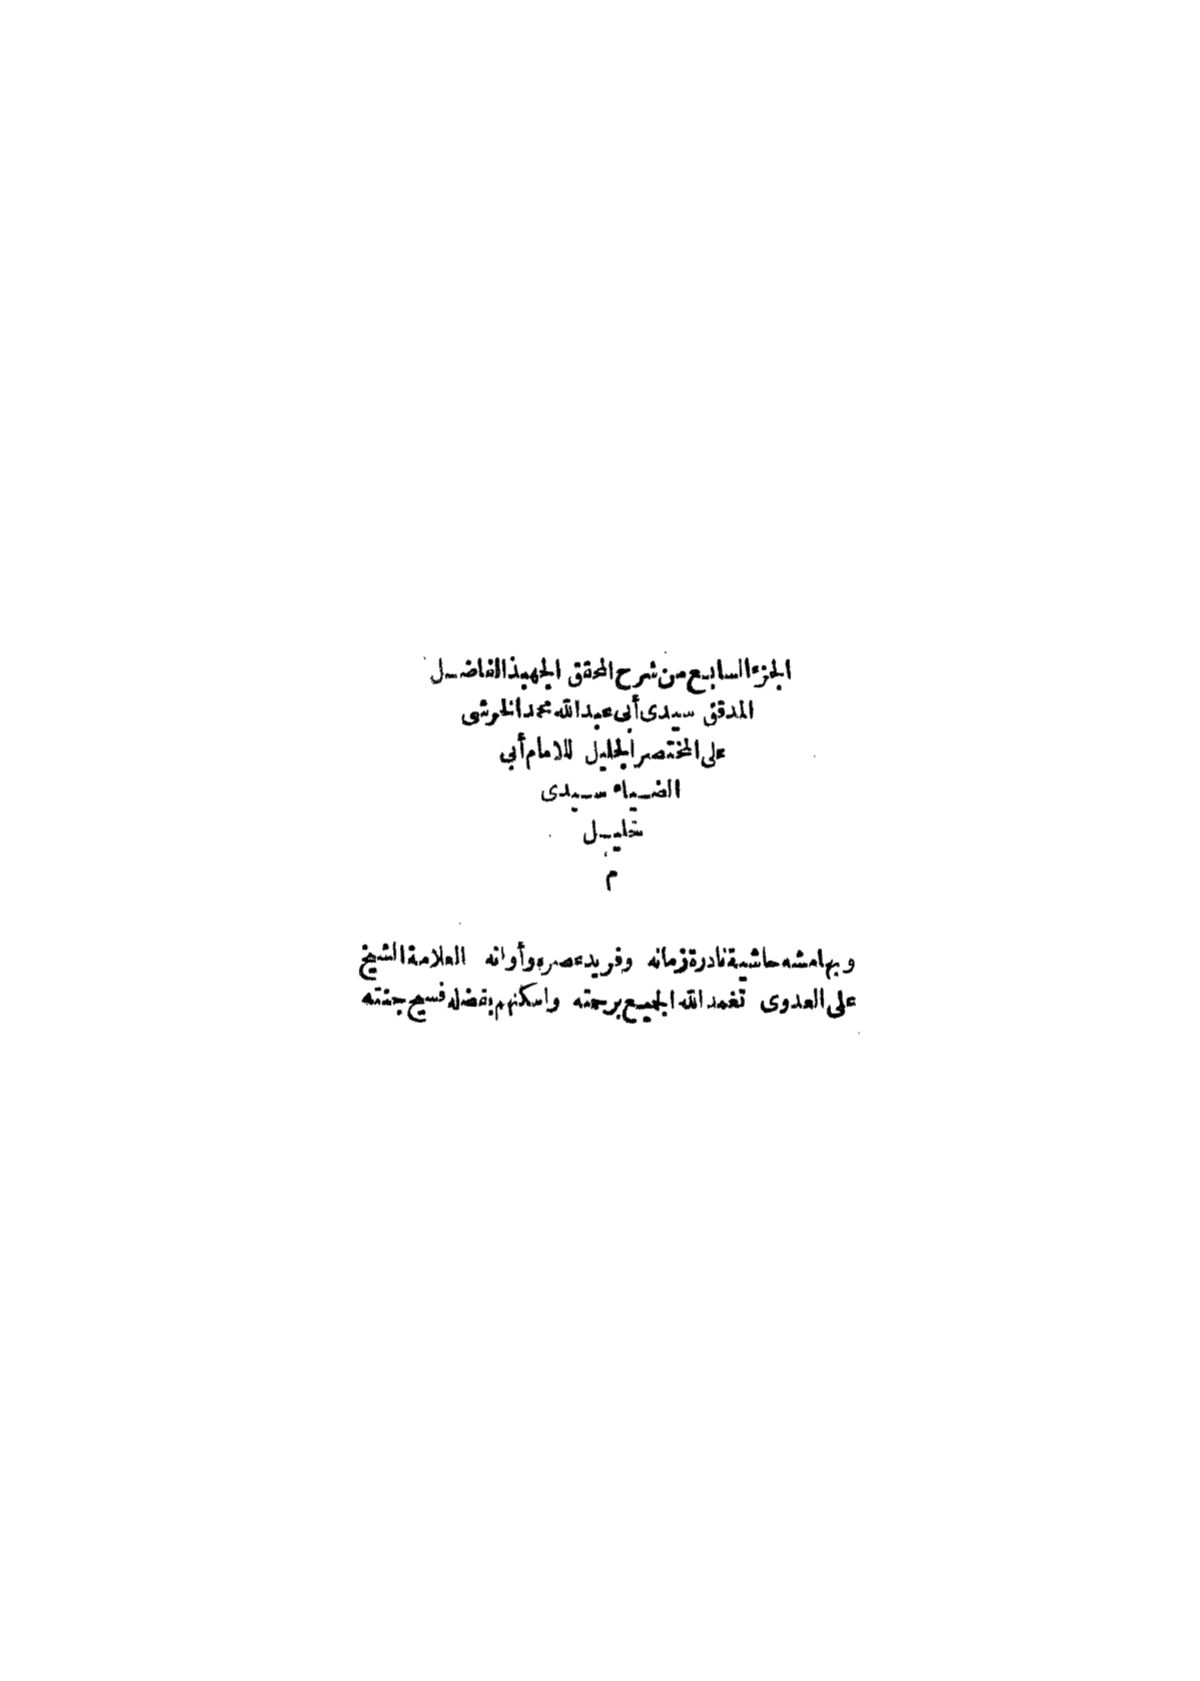 الجزء السابع من شرح المحقق الجهبذ الفاضل
المدقق سيدى أبى عبد الله محمد الخرشى
على المختصر الجليل للامام أبي
الضياء سيدى
خليل
م
وبهامشه حاشية نادرة زمانه وفريد عصره وأوانه العلامة الشيخ
على العدوى تغمد الله الجميع برحمته واسكنهم بفضله فسيح جنته